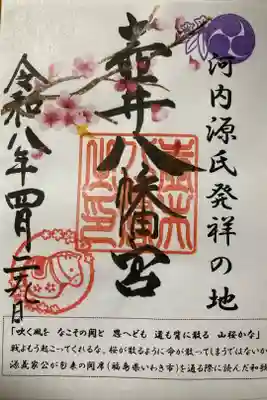 河内源氏発祥の地
壺井八幡宮
令和八年四月二九日
「吹く風を なこその関と 思へども 道も背に散る 山桜かな」
戦よもう起こってくれるな。桜が散るように命が散ってしまうではないか
源義家公が勿来の関所（福島県いわき市）を通る際に読んだ和歌